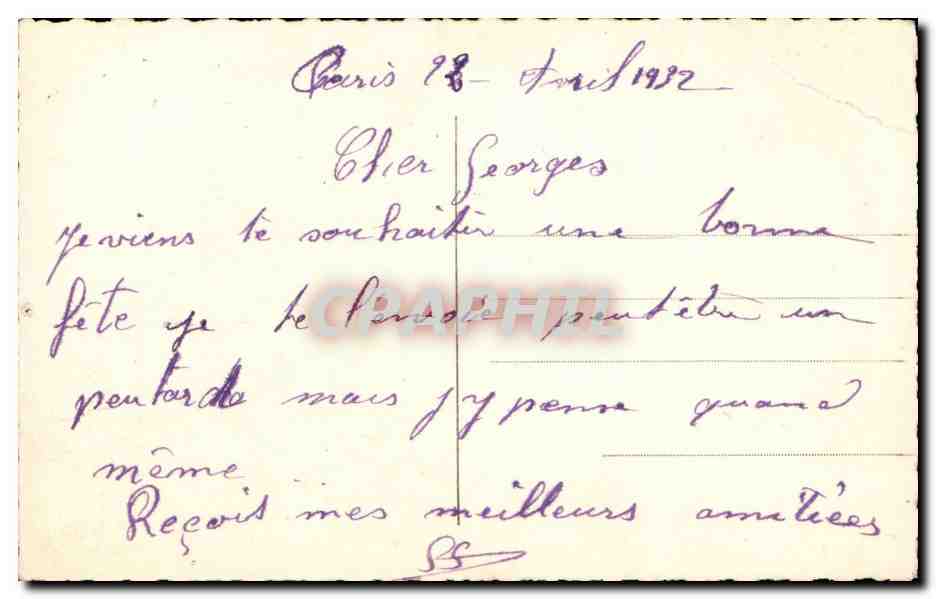 Paris 28 Avril 1932
Cher Georges
Je viens te souhaiter une bonne
fête je te l'envoie peutêtre un
peu tard mais j'y pense quand
même
Reçois mes meilleurs amitiées
CPARPHIL